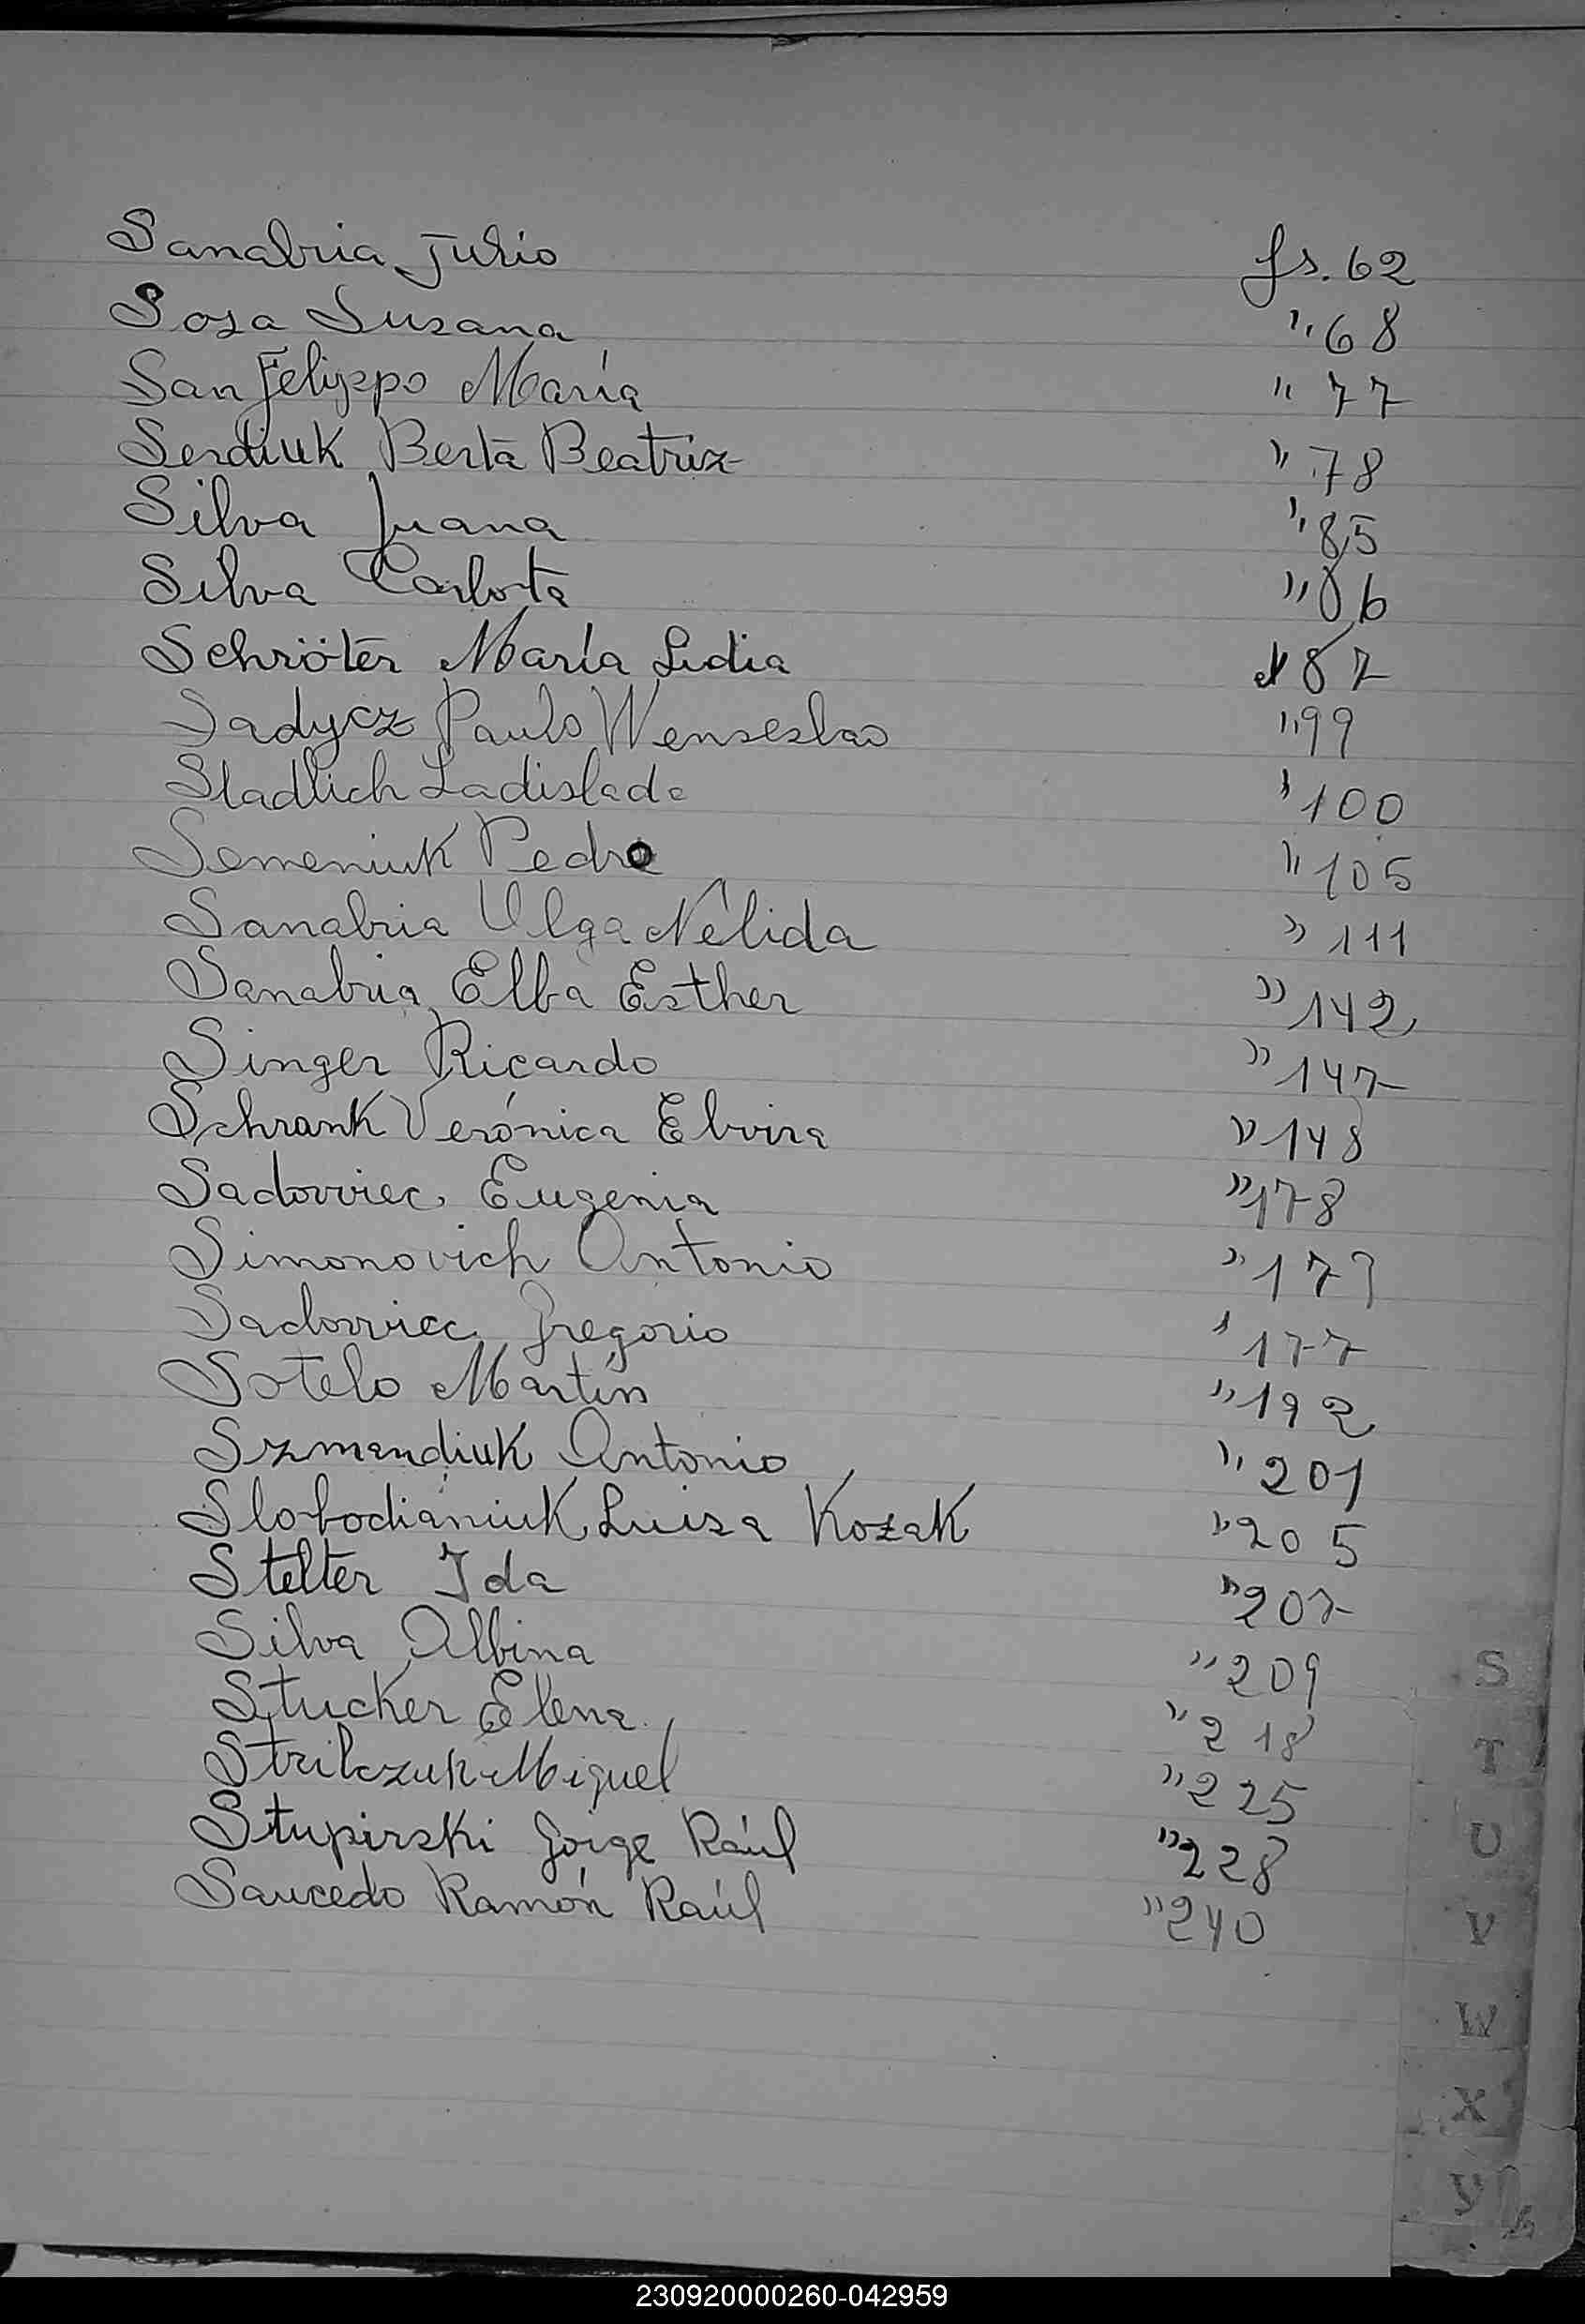 Sanabria Julio fs. 62
Sosa Susana " 68
San Felippo María " 77
Serdiuk Berta Beatriz " 78
Silva Juana " 85
Silva Carlota " 86
Schröter María Lidia " 87
Sadycz Paulo Wenseslao " 99
Sladlich Ladislada " 100
Semeniuk Pedro " 105
Sanabria Olga Nélida " 111
Sanabria Elba Esther " 142
Singer Ricardo " 147
Schrank Verónica Elvira " 148
Sadovviec Eugenia " 178
Simonovich Antonio " 179
Sadovviec Gregorio " 177
Sotelo Martín " 192
Szmendiuk Antonio " 201
Slobodianiuk Luisa Kozak " 205
Stelter Ida " 207
Silva Albina " 209
Stucker Elena " 218
Strilczuk Miguel " 225
Stupirski Jorge Raúl " 228
Saucedo Ramón Raúl " 240
S
T
U
V
W
X
Y
230920000260-042959